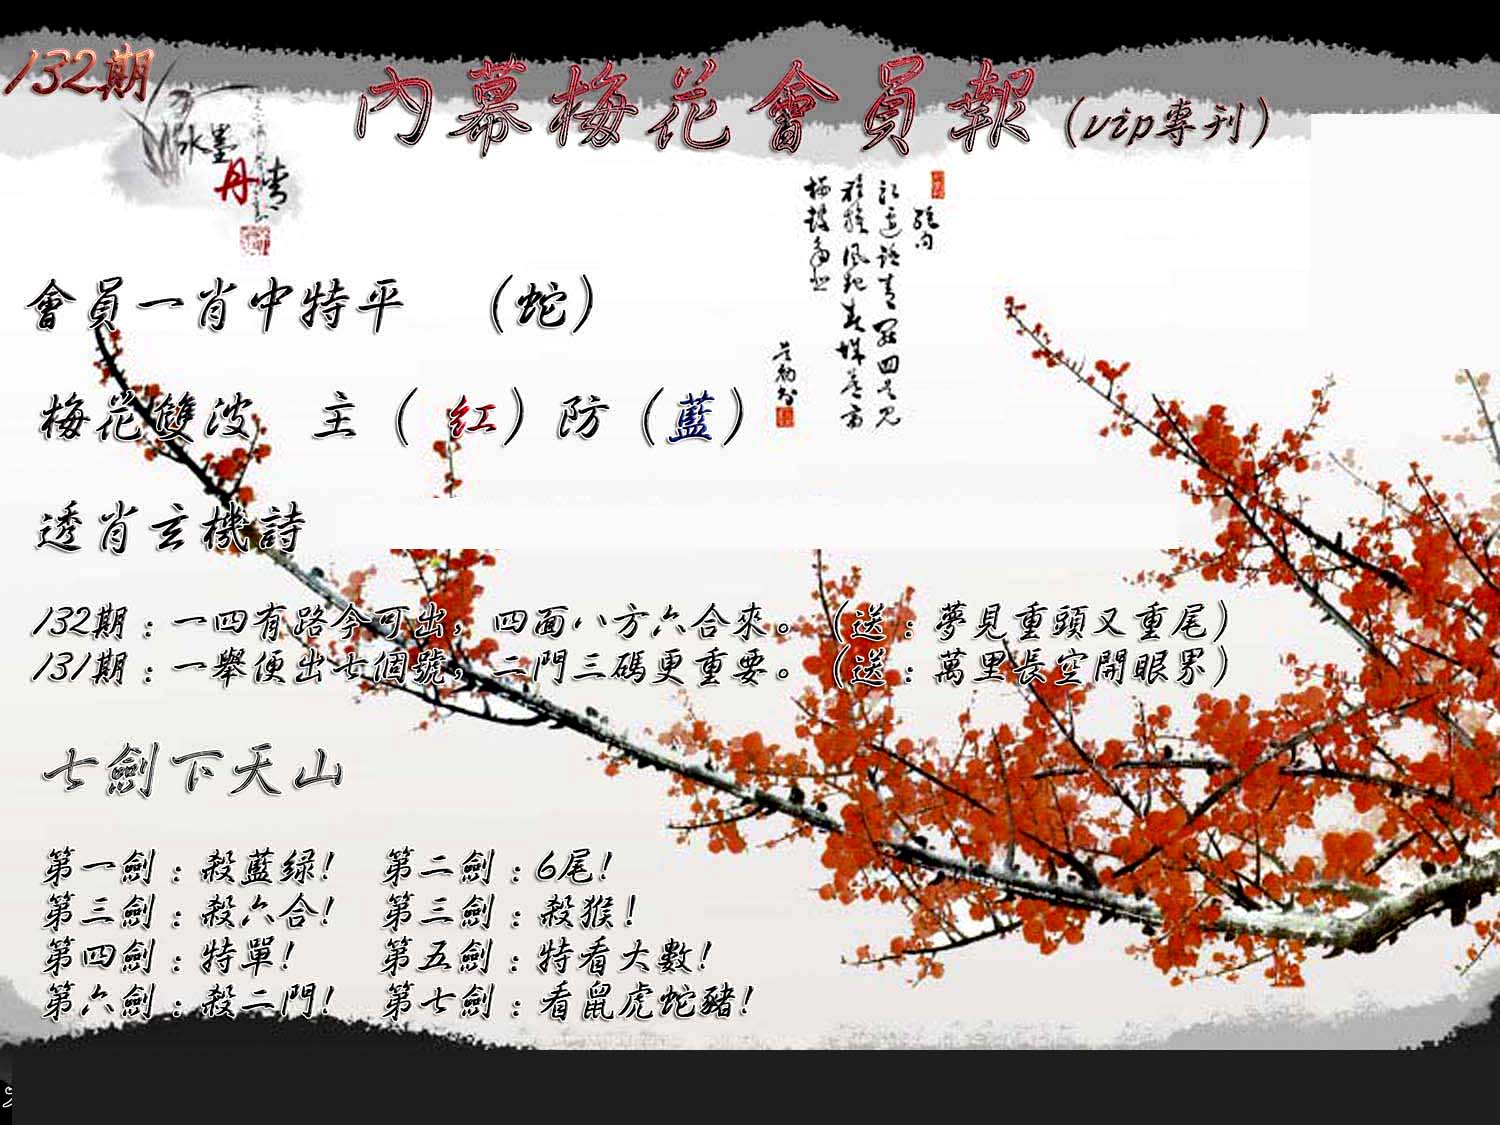 132期
內幕梅花會員報（vip專刊）
水墨
丹青
會員一肖中特平　（蛇）
梅花雙波　主（紅）防（藍）
透肖玄機詩
132期：一四有路今可出，四面八方六合來。（送：夢見重頭又重尾）
131期：一舉便出七個號，二門三碼更重要。（送：萬里長空開眼界）
七劍下天山
第一劍：殺藍绿!　第二劍：6尾!
第三劍：殺六合!　第三劍：殺猴!
第四劍：特單!　第五劍：特看大數!
第六劍：殺二門!　第七劍：看鼠虎蛇豬!